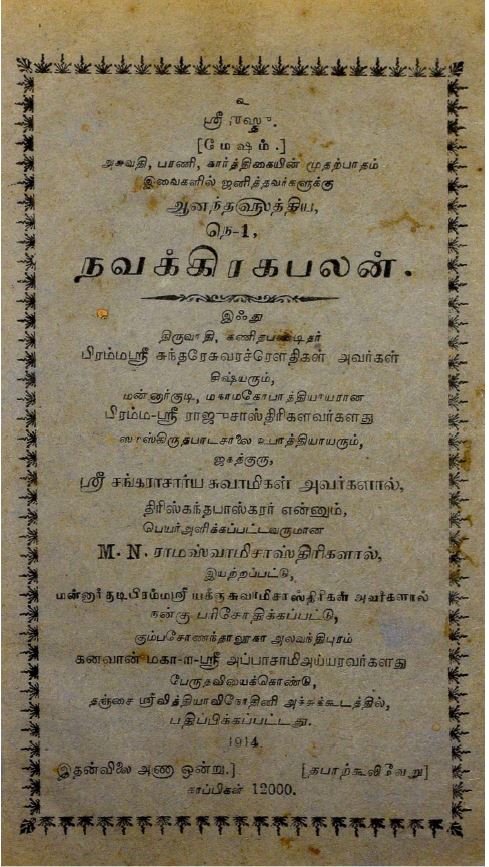 உ
ஸ்ரீ
[மேஷம்.]
அசுவதி, பரணி, கார்த்திகையின் முதற்பாதம்
இவைகளில் ஜனித்தவர்களுக்கு
ஆனந்த
நெ-1,
நவக்கிரகபலன்.
இஃது
திருவாதி, கணிதபண்டிதர்
பிரம்மஸ்ரீ சுந்தரேசுவரச்ரௌதிகள் அவர்கள்
சிஷ்யரும்,
மன்னார்குடி, மகாமகோபாத்தியாயரான
பிரம்ம-ஸ்ரீ ராஜுசாஸ்திரிகளவர்களது
ஸம்ஸ்கிருதபாடசாலை உபாத்தியாயரும்,
ஜகத்குரு,
ஸ்ரீ சங்கராசார்ய சுவாமிகள் அவர்களால்,
திரிஸ்கந்தபாஸ்கரர் என்னும்,
பெயர்அளிக்கப்பட்டவருமான
M. N. ராமஸ்வாமிசாஸ்திரிகளால்,
இயற்றப்பட்டு,
மன்னார்குடிபிரம்மஸ்ரீ யக்ஞசுவாமிசாஸ்திரிகள் அவர்களால்
நன்கு பரிசோதிக்கப்பட்டு,
கும்பகோணந்தாலூகா அலவந்திபுரம்
கனவான் மகா-ா-ஸ்ரீ அப்பாசாமிஅய்யரவர்களது
பேருதவியைக்கொண்டு,
தஞ்சை ஸ்ரீவித்தியாவிநோதினி அச்சுக்கூடத்தில்,
பதிப்பிக்கப்பட்டது.
1914.
இதன்விலை அணா ஒன்று.] [தபாற்கூலிவேறு]
காப்பிகள் 12000.